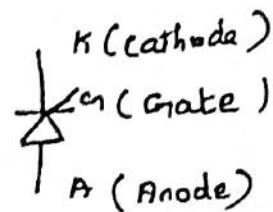 K (Cathode)
G (Gate)
A (Anode)